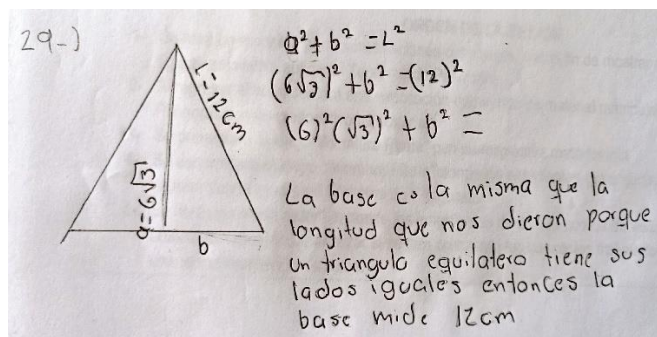 29-)
a² + b² = L²
(6√3)² + b² = (12)²
(6)²(√3)² + b² =
L = 12cm
a = 6√3
b
La base es la misma que la
longitud que nos dieron porque
un triangulo equilatero tiene sus
lados iguales entonces la
base mide 12cm